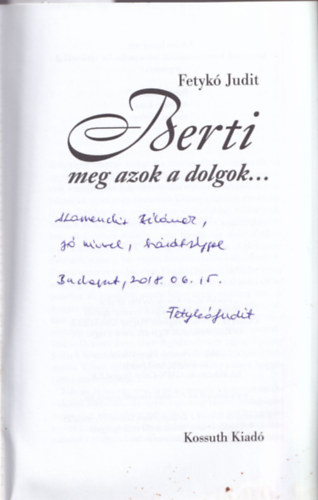 Fetykó Judit
Berti
meg azok a dolgok...
jó szívvel, barátsággal
Budapest, 2018. 06. 15.
Fetykó Judit
Kossuth Kiadó